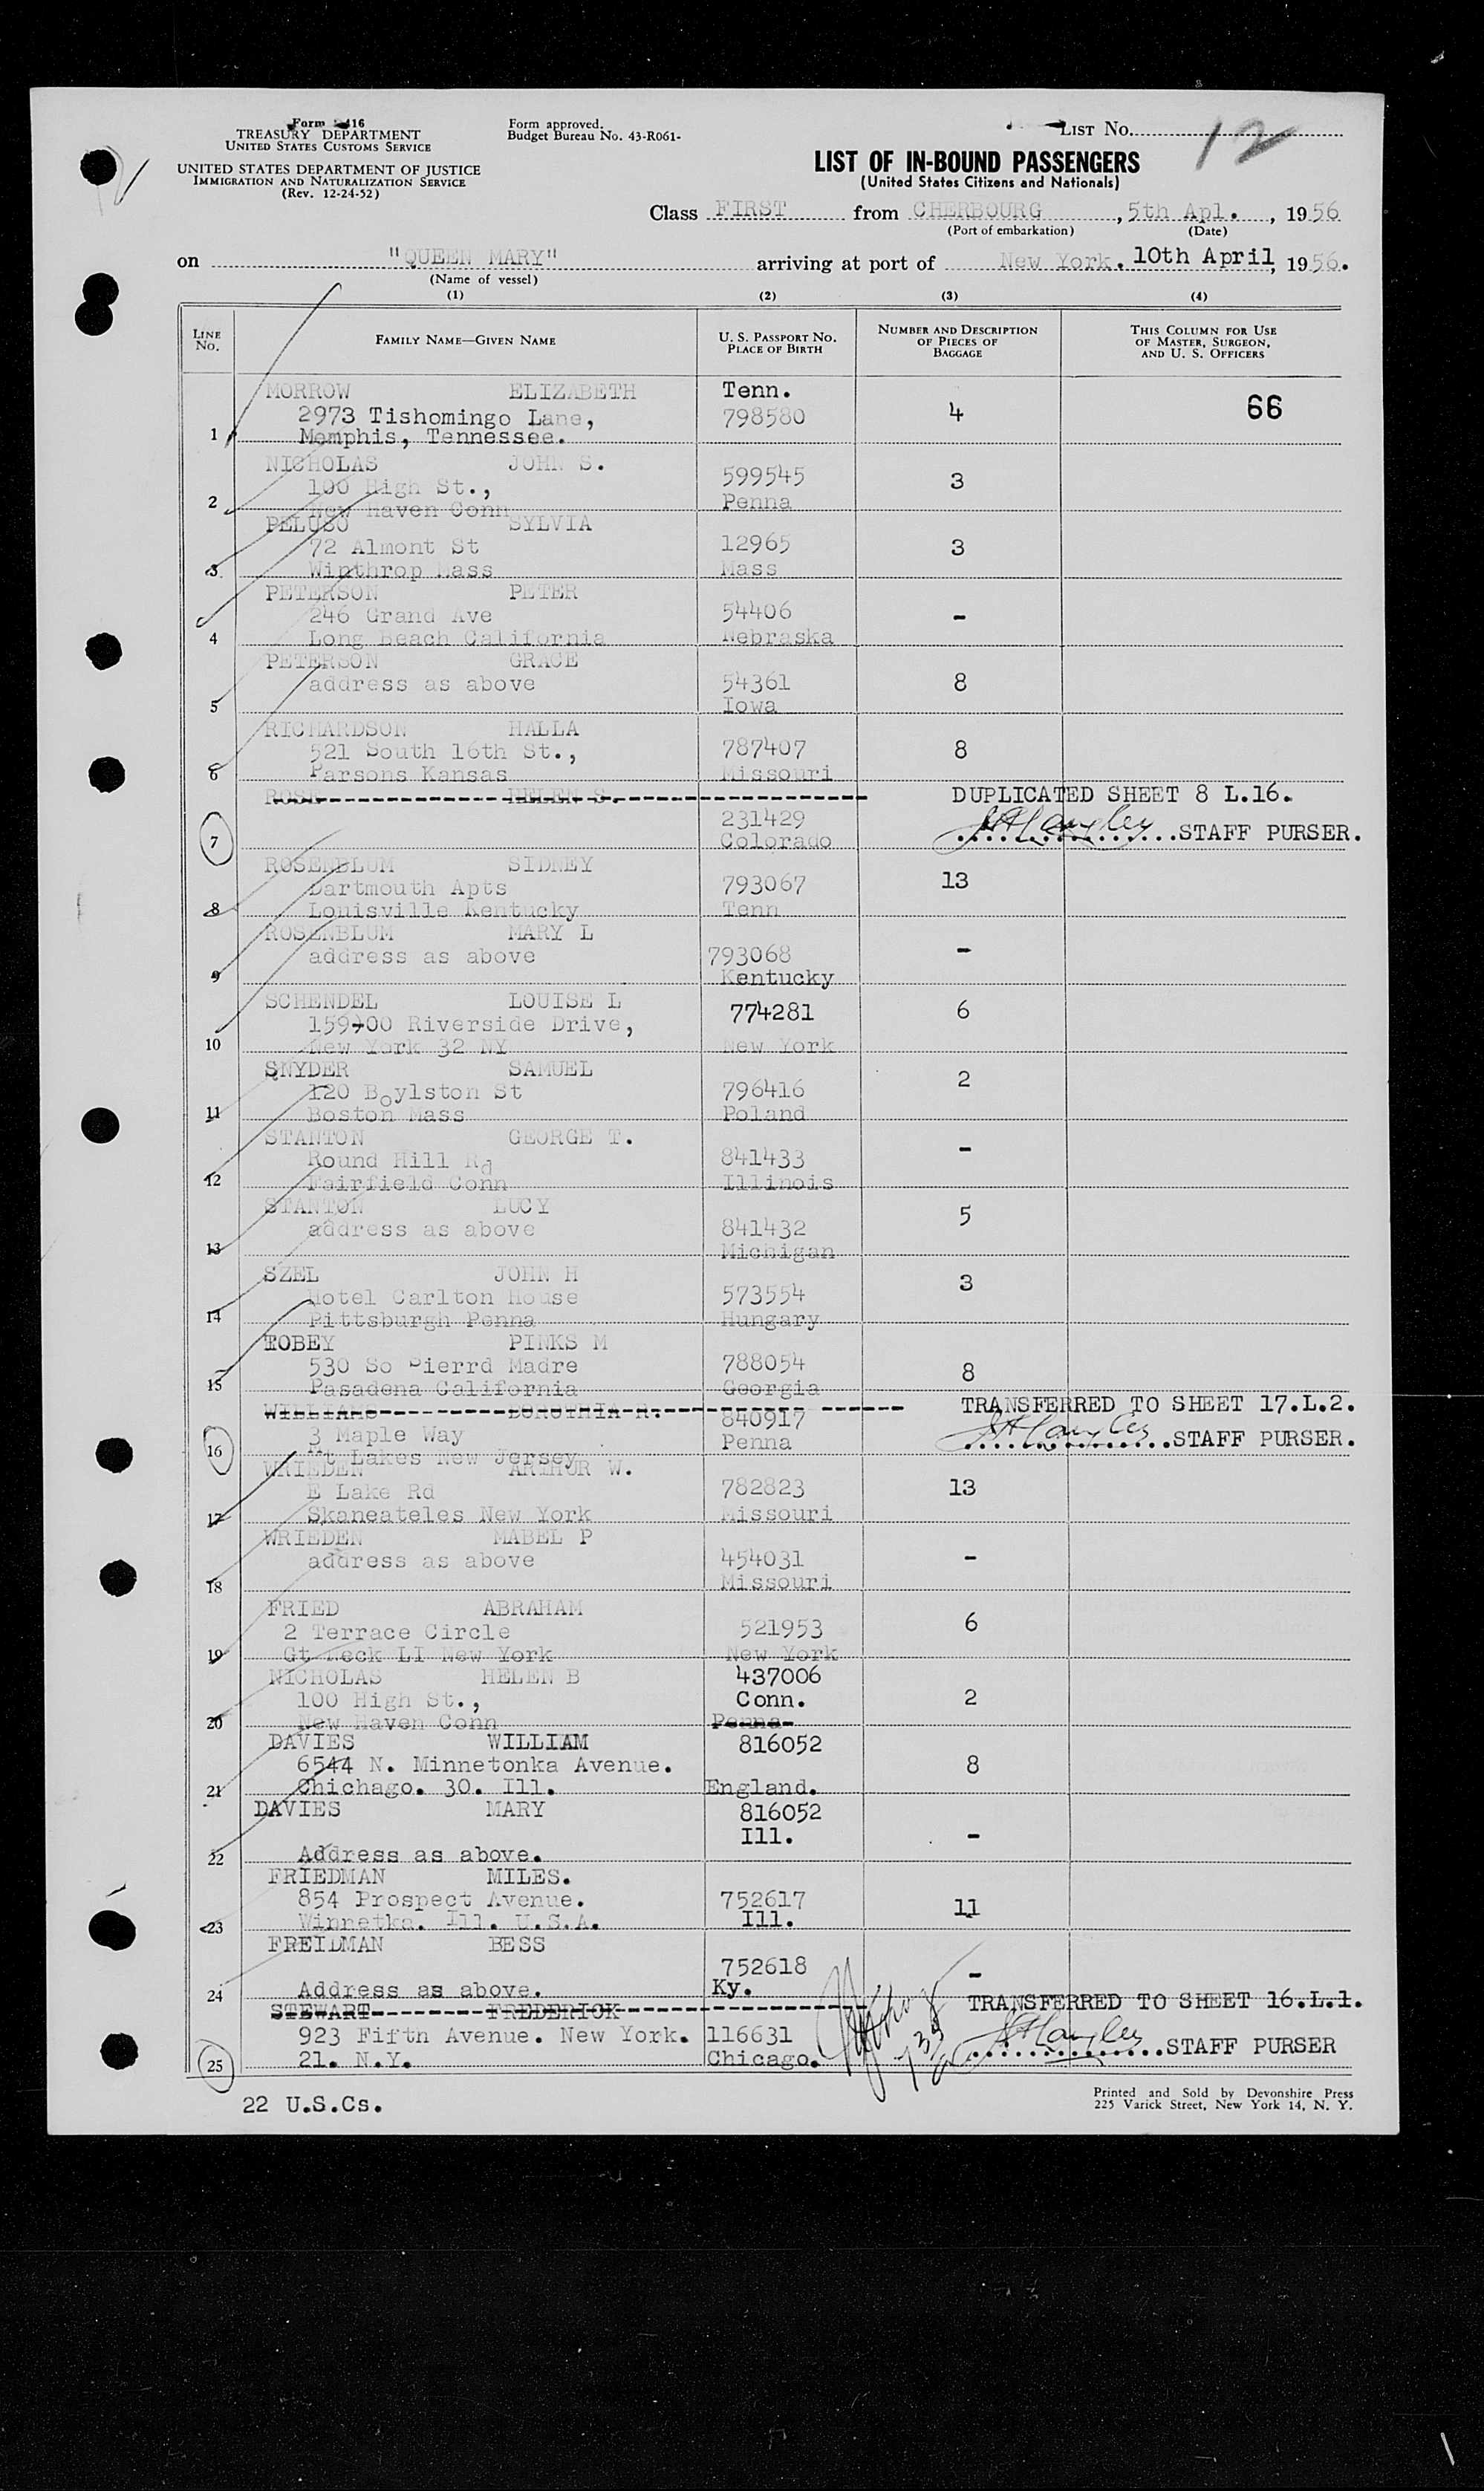 Form 416
TREASURY DEPARTMENT
UNITED STATES CUSTOMS SERVICE
UNITED STATES DEPARTMENT OF JUSTICE
IMMIGRATION AND NATURALIZATION SERVICE
(Rev. 12-24-52)
Form approved.
Budget Bureau No. 43-R061-
LIST No. 12
LIST OF IN-BOUND PASSENGERS
(United States Citizens and Nationals)
Class FIRST from CHERBOURG, 5th Apl., 1956
(Port of embarkation) (Date)
on "QUEEN MARY" arriving at port of New York. 10th April, 1956.
(Name of vessel)
(1) (2) (3) (4)
LINE No. FAMILY NAME—GIVEN NAME U. S. PASSPORT NO. PLACE OF BIRTH NUMBER AND DESCRIPTION OF PIECES OF BAGGAGE THIS COLUMN FOR USE OF MASTER, SURGEON, AND U. S. OFFICERS
MORROW ELIZABETH Tenn.
2973 Tishomingo Lane, 798580 4 66
1 Memphis, Tennessee.
NICHOLAS JOHN S. 599545 3
100 High St.,
2 New Haven Conn Penna
PELUSO SYLVIA
72 Almont St 12965 3
3 Winthrop Mass Mass
PETERSON PETER
246 Grand Ave 54406 -
4 Long Beach California Nebraska
PETERSON GRACE
address as above 54361 8
5 Iowa
RICHARDSON HALLA
521 South 16th St., 787407 8
6 Parsons Kansas Missouri
ROSE HELEN S. DUPLICATED SHEET 8 L.16.
231429
7 Colorado STAFF PURSER.
ROSENBLUM SIDNEY
Dartmouth Apts 793067 13
8 Louisville Kentucky Tenn
ROSENBLUM MARY L
address as above 793068 -
9 Kentucky
SCHENDEL LOUISE L 774281 6
159-00 Riverside Drive,
10 New York 32 NY New York
SNYDER SAMUEL 2
120 Boylston St 796416
11 Boston Mass Poland
STANTON GEORGE T. -
Round Hill Rd 841433
12 Fairfield Conn Illinois
STANTON LUCY 5
address as above 841432
13 Michigan
SZEL JOHN H 3
Hotel Carlton House 573554
14 Pittsburgh Penna Hungary
TOBEY PINKS M
530 So Pierrd Madre 788054 8
15 Pasadena California Georgia
WILLIAMS DOROTHIA R. 840917 TRANSFERRED TO SHEET 17.L.2.
3 Maple Way Penna STAFF PURSER.
16 Mt Lakes New Jersey
WRIEDEN ARTHUR W.
E Lake Rd 782823 13
17 Skaneateles New York Missouri
WRIEDEN MABEL P
address as above 454031 -
18 Missouri
FRIED ABRAHAM
2 Terrace Circle 521953 6
19 Gt Neck LI New York New York
NICHOLAS HELEN B 437006
100 High St., Conn. 2
20 New Haven Conn Penna
DAVIES WILLIAM 816052
6544 N. Minnetonka Avenue. 8
21 Chichago. 30. Ill. England.
DAVIES MARY 816052
Ill. -
22 Address as above.
FRIEDMAN MILES.
854 Prospect Avenue. 752617 11
23 Winnetka. Ill. U.S.A. Ill.
FREIDMAN BESS
752618 -
24 Address as above. Ky.
STEWART FREDERICK TRANSFERRED TO SHEET 16.L.1.
923 Fifth Avenue. New York. 116631 STAFF PURSER
25 21. N.Y. Chicago.
22 U.S.Cs.
Printed and Sold by Devonshire Press
225 Varick Street, New York 14, N. Y.